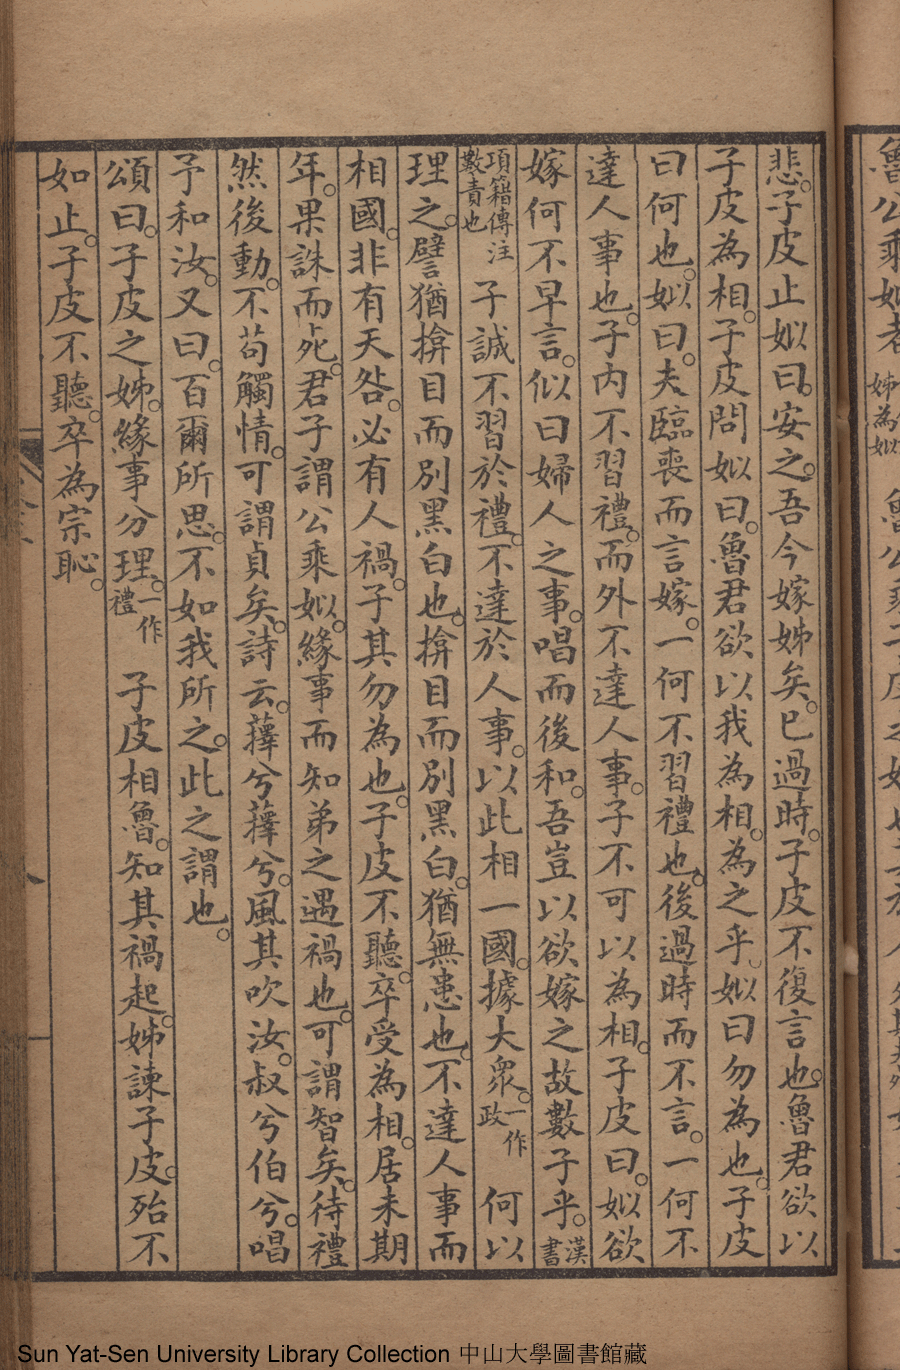 魯公乘姒者 姊為姒 魯公乘子皮之姒也其族人
悲。子皮止姒曰。安之。吾今嫁姊矣。已過時。子皮不復言也。魯君欲以
子皮為相。子皮問姒曰。魯君欲以我為相。為之乎。姒曰勿為也。子皮
曰何也。姒曰。夫臨喪而言嫁。一何不習禮也。後過時而不言。一何不
達人事也。子內不習禮。而外不達人事。子不可以為相。子皮曰。姒欲
嫁何不早言。姒曰婦人之事。唱而後和。吾豈以欲嫁之故數子乎。漢書
項籍傳注數責也 子誠不習於禮。不達於人事。以此相一國。據大眾。一作政 何以
理之。譬猶揜目而別黑白也。揜目而別黑白。猶無患也。不達人事而
相國。非有天咎。必有人禍。子其勿為也。子皮不聽。卒受為相。居未期
年。果誅而死。君子謂公乘姒。緣事而知弟之遇禍也。可謂智矣。待禮
然後動。不苟觸情。可謂貞矣。詩云。蘀兮蘀兮。風其吹汝。叔兮伯兮。唱
予和汝。又曰。百爾所思。不如我所之。此之謂也。
頌曰。子皮之姊。緣事分理。一作禮 子皮相魯。知其禍起。姊諫子皮。殆不
如止。子皮不聽。卒為宗恥。
Sun Yat-Sen University Library Collection 中山大學圖書館藏